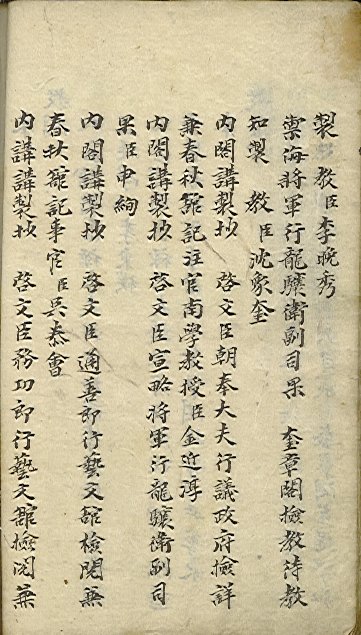 製 教臣李晩秀
禦海將軍行龍驤衛副司果 奎章閣檢教待教
知製 教臣沈象奎
內閣講製抄 啓文臣朝奉大夫行議政府檢詳
兼春秋館記注官南學教授臣金近淳
內閣講製抄 啓文臣宣略將軍行龍驤衛副司
果臣申絢
內閣講製抄 啓文臣通善郎行藝文館檢閱兼
春秋館記事官臣吳泰曾
內閣講製抄 啓文臣務功郎行藝文館檢閱兼